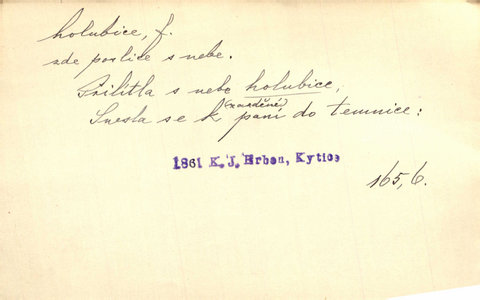 holubice, f.
zde poslice s nebe.
Přilítla s nebe holubice,
(zazděné)
Snesla se k paní do temnice:
1861 K. J. Erben, Kytice
165, 6.